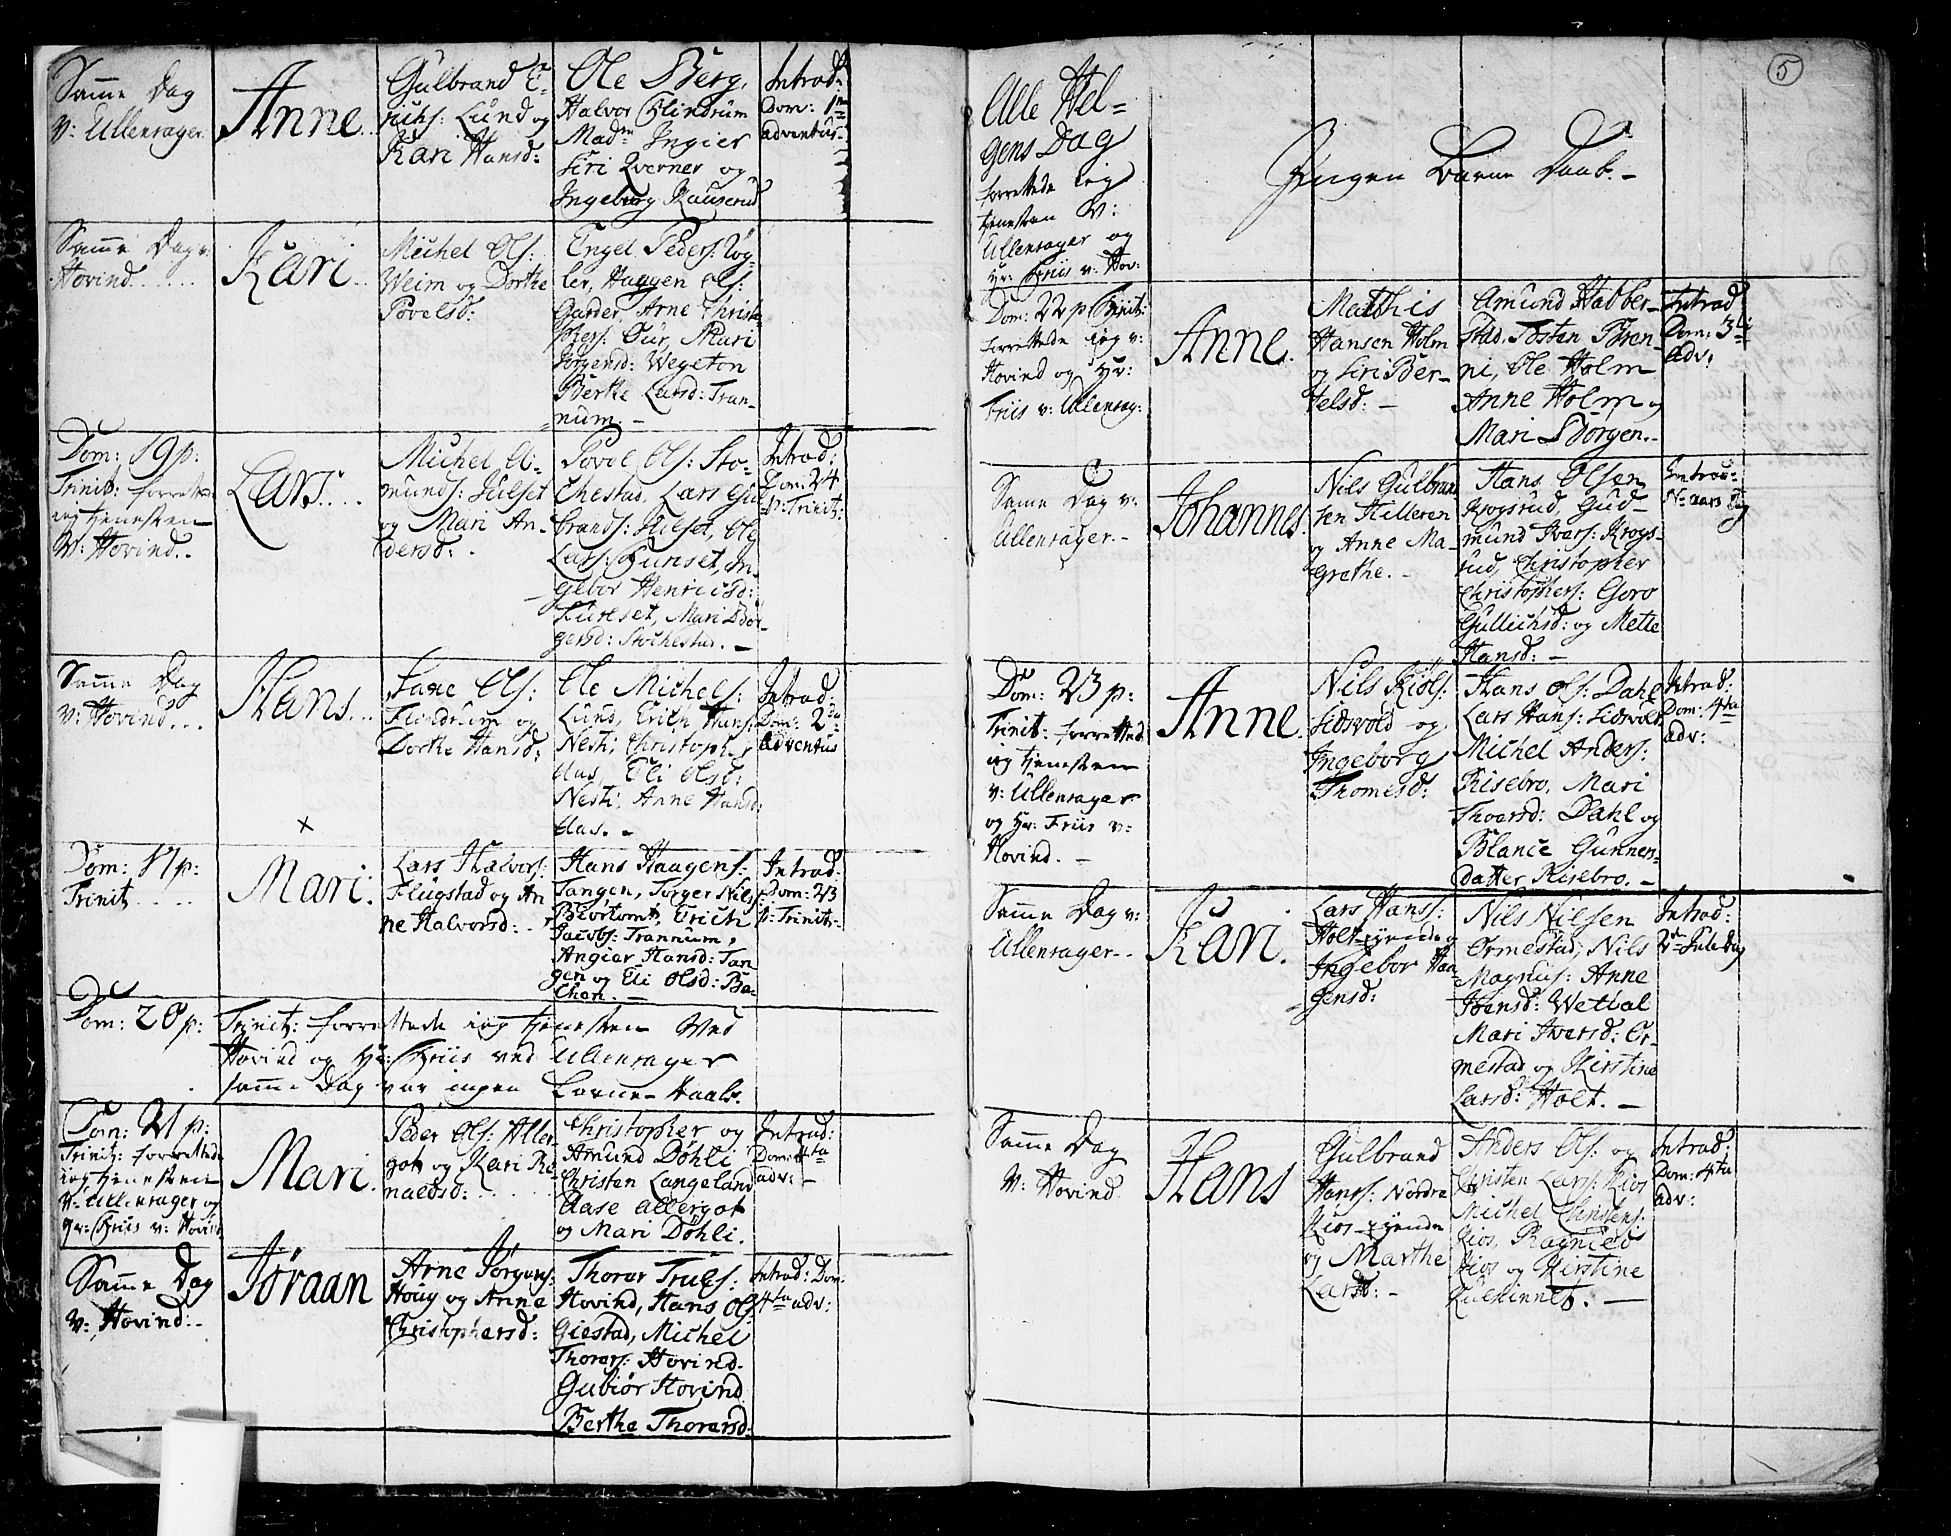 Samme Dag
v: Ullensager.
Anne.
Gulbrand E-
richs: Lund og
Kari Hansd:
Ole Berg,
Halvor Klindrum
Madm Ingier
Siri Qverner og
Ingeborg Rauserud
Introd:
Dom: 1ma
adventus
Samme Dag v:
Hovind.....
Kari..
Michel Ols:
Weim og Dorthe
Povelsd:
Engel Peders: Røg-
ler, Haagen Ols:
Garder, Arne Christo-
phers: Tur, Mari
Jørgensd: Wegeton
Berthe Larsd: Tran-
num. -
Dom: 19 p:
Trinit: forrettede
ieg tjenesten
v: Hovind..
Lars...
Michel A-
munds: Julset
og Mari An-
dersd:
Povel Ols: Sto-
chestad, Lars Gul-
brands: Julset, Ole
Lars: Funset, In-
gebor Henrichsd:
Julset, Mari Ior-
gensd: Stochestad. -
Introd:
Dom: 24
p: Trinit:
Samme Dag
v: Hovind...
Hans...
Ole Michels:
Lund, Erich Hans:
Nesti, Christopher
Aas, Eli Olsd:
Nesti, Anne Hansd:
Aas. -
Flindrum og
Dorthe Hansd:
Introd:
Dom: 2da
adventus
x
Dom: 17 p:
Trinit....
Mari.
Lars Halvors:
Flugstad og An-
ne Halvorsd:
Hans Haagens:
Tangen, Torger Nils:
Biörtomt, Erich
Jacobs: Trannum,
Angier Hansd: Tan-
gen og Eli Olsd: Ba-
chen. -
Introd:
Dom: 23
p: Trinit:
Dom: 20 p: Trinit: forrettede ieg tjenesten ved
Hovind og Hr: Friis ved Ullensager
samme Dag var ingen Børne-Daab.
Dom: 21 p:
Trinit: forrettede
ieg tjenesten
v: Ullensager og
Hr: Friis v: Hovind
Mari.
Peder Ols: Aller-
got og Kari Re-
naldsd:
Christopher og
Amund Døhli
Christen Langeland
Aase Allergot
og Mari Døhli.
Introd:
Dom: 4ta
adv: -
Samme Dag
v: Hovind:-
Jøraan
Arne Jørgens:
Houg og Anne
Christophersd:
Thorer Truls:
Hovind, Hans Ols:
Giestad, Michel
Thorers: Hovind.
Gubiør Hovind
Berthe Thorersd:
Introd: Dom:
4ta adv:
5
Alle Hel-
gens Dag
forrettede ieg
tjenesten v:
Ullensager og
Hr: Friis v: Hov:
Ingen Barne Daab. -
Dom: 22 p Trinit:
forrettede ieg v:
Hovind og Hr:
Friis v: Ullensag:
Anne.
Mathis
Hansen Holm
og Siri Ber-
telsd: -
Amund Habber-
stad, Tosten Foren-
ni, Ole Holm
Anne Holm og
Mari Borgen. -
Introd
Dom: 3ti
adv:
Samme Dag v:
Ullensager. -
Johannes.
Nils Gulbran-
sen Hilleren
og Anne Ma-
grethe. -
Hans Olsen
Krogsrud, Gud-
mund Ivars: Krogs-
rud, Christopher
Christophers: Goro
Gullichsd: og Mette
Hansd: -
Introd:
N: aars Dag
Dom: 23 p:
Trinit: forretted
ieg tjenesten
v: Ullensager
og Hr: Friis v:
Hovind. -
Anne.
Nils Kiøls:
Eidsvold og
Ingeborg
Thomesd:
Hans Ols: Dahl
Lars Hans: Eidsvold
Michel Anders:
Risebro, Mari
Thoersd: Dahl og
Blance Gunners-
datter Risebro. -
Introd:
Dom: 4ta
adv:
Samme Dag v:
Ullensager. -
Kari.
Lars Hanss:
Holt-eyende og
Ingebor Haa-
gensd:
Nils Nilsen
Ormestad, Nils
Magnus: Anne
Hansd: Wettal
Mari Iversd: Or-
mestad og Kirstine
Larsd: Holt. -
Introd:
2d Juledag
Samme Dag
v: Hovind
Hans
Gulbrand
Hanss: Nordre
Kios-eyende
og Marthe
Larsd: -
Anders Ols: og
Christen Lars: Kios
Michel Christens:
Kios, Ragnild
Kios og Kirstine
Introd:
Dom: 4ta
adv: